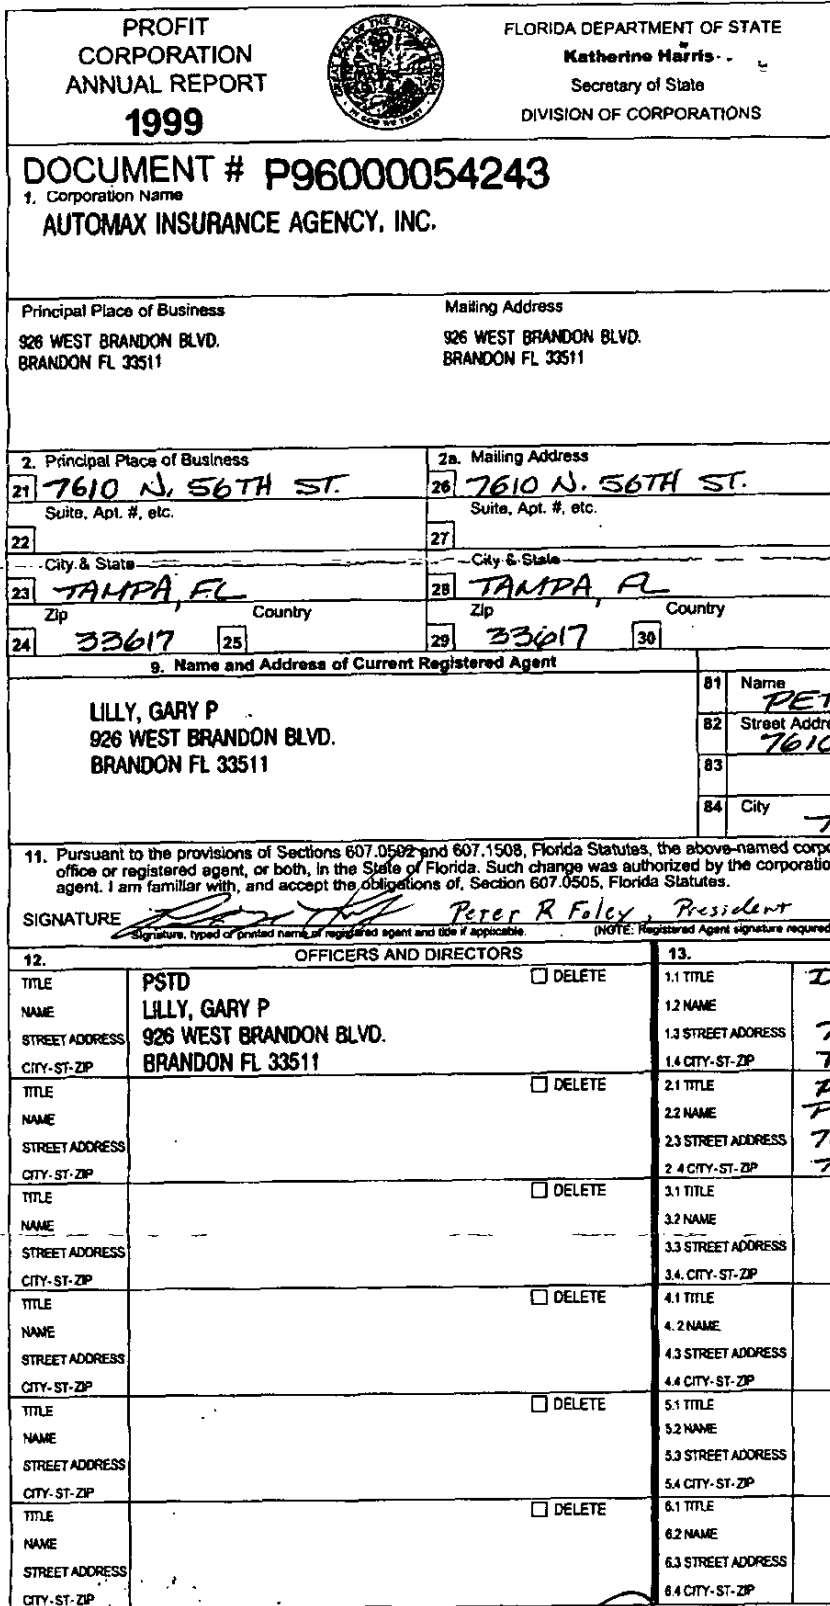 PROFIT
CORPORATION
ANNUAL REPORT
1999
FLORIDA DEPARTMENT OF STATE
Katherine Harris
Secretary of State
DIVISION OF CORPORATIONS
DOCUMENT # P96000054243
1. Corporation Name
AUTOMAX INSURANCE AGENCY, INC.
Principal Place of Business
926 WEST BRANDON BLVD.
BRANDON FL 33511
Mailing Address
926 WEST BRANDON BLVD.
BRANDON FL 33511
2. Principal Place of Business
21 7610 N. 56TH ST.
Suite, Apt. #, etc.
22
City & State
23 TAMPA, FL
Zip Country
24 33617 25
2a. Mailing Address
26 7610 N. 56TH ST.
Suite, Apt. #, etc.
27
City & State
28 TAMPA, FL
Zip Country
29 33617 30
9. Name and Address of Current Registered Agent
LILLY, GARY P
926 WEST BRANDON BLVD.
BRANDON FL 33511
81 Name
PET
82 Street Addre
7610
83
84 City
11. Pursuant to the provisions of Sections 607.0502 and 607.1508, Florida Statutes, the above-named corpo
office or registered agent, or both, in the State of Florida. Such change was authorized by the corporatio
agent. I am familiar with, and accept the obligations of, Section 607.0505, Florida Statutes.
SIGNATURE Peter R Foley, President
Signature, typed or printed name of registered agent and title if applicable. (NOTE: Registered Agent signature required
12. OFFICERS AND DIRECTORS 13.
TITLE PSTD DELETE 1.1 TITLE
NAME LILLY, GARY P 1.2 NAME
STREET ADDRESS 926 WEST BRANDON BLVD. 1.3 STREET ADDRESS
CITY-ST-ZIP BRANDON FL 33511 1.4 CITY-ST-ZIP
TITLE DELETE 2.1 TITLE
NAME 2.2 NAME
STREET ADDRESS 2.3 STREET ADDRESS
CITY-ST-ZIP 2 4 CITY-ST-ZIP
TITLE DELETE 3.1 TITLE
NAME 3.2 NAME
STREET ADDRESS 3.3 STREET ADDRESS
CITY-ST-ZIP 3.4. CITY-ST-ZIP
TITLE DELETE 4.1 TITLE
NAME 4. 2 NAME
STREET ADDRESS 4.3 STREET ADDRESS
CITY-ST-ZIP 4.4 CITY-ST-ZIP
TITLE DELETE 5.1 TITLE
NAME 5.2 NAME
STREET ADDRESS 5.3 STREET ADDRESS
CITY-ST-ZIP 5.4 CITY-ST-ZIP
TITLE DELETE 6.1 TITLE
NAME 6.2 NAME
STREET ADDRESS 6.3 STREET ADDRESS
CITY-ST-ZIP 6.4 CITY-ST-ZIP